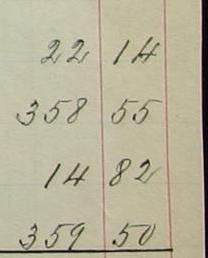 22 14
358 55
14 82
359 50